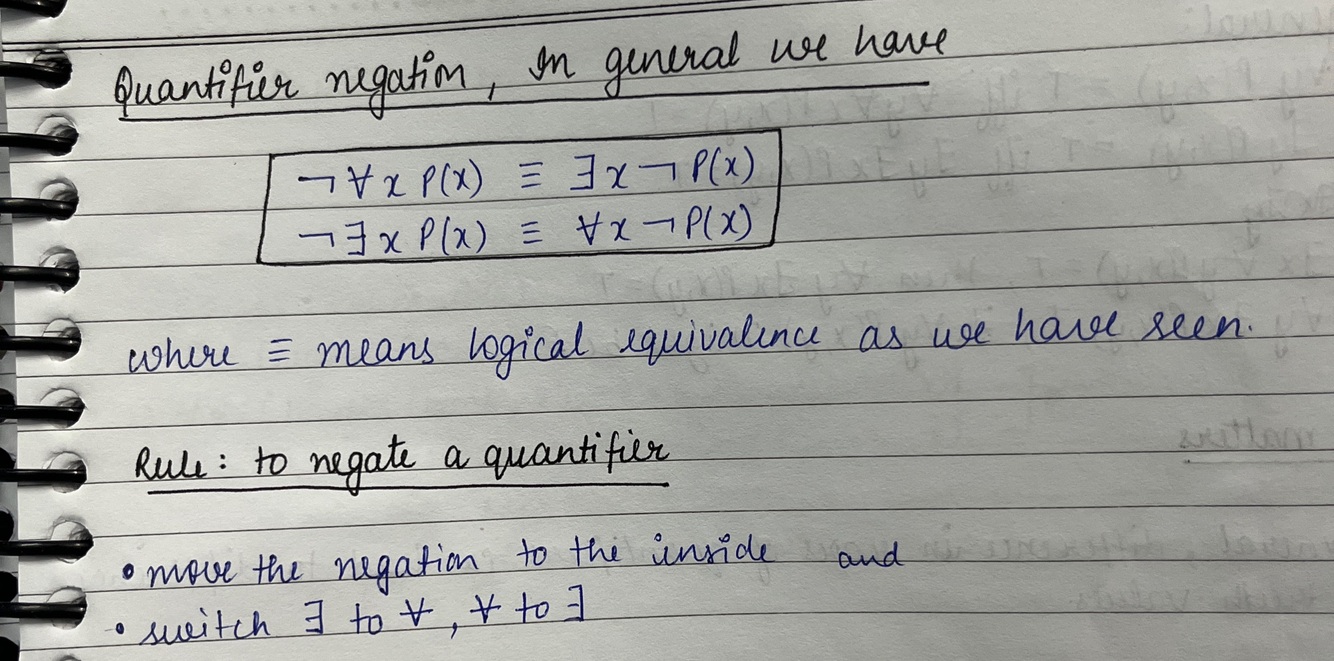 Quantifier negation, In general we have
¬∀x P(x) ≡ ∃x ¬P(x)
¬∃x P(x) ≡ ∀x ¬P(x)
where ≡ means logical equivalence as we have seen.
Rule: to negate a quantifier
• move the negation to the inside and
• switch ∃ to ∀, ∀ to ∃